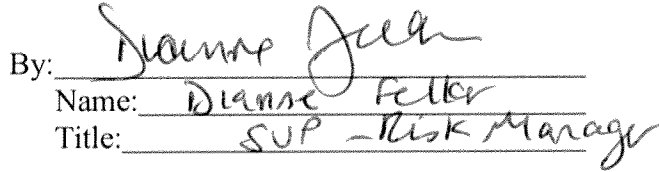 By: Dianne
Name: Dianne Feller
Title: SVP - Risk Manager